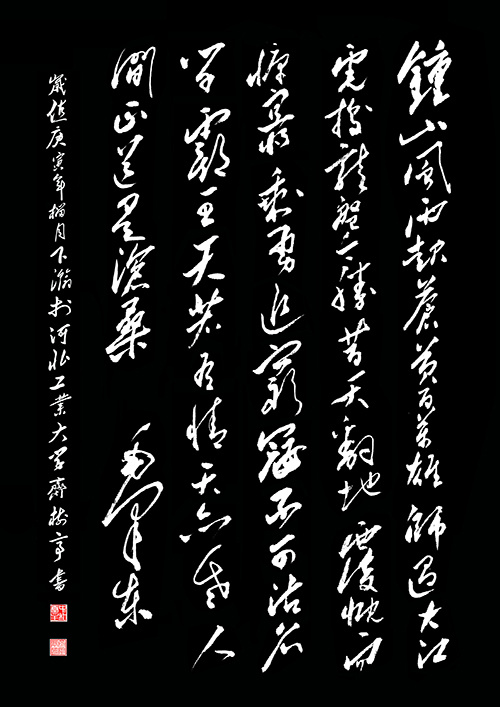 鍾山風雨起蒼黄百萬雄師過大江
虎踞龍盤今勝昔天翻地覆慨而
慷宜將剩勇追窮寇不可沽名
学霸王天若有情天亦老人
間正道是滄桑 毛澤東
歲值庚寅年腊月下澣於河北工業大学齊樹亭書